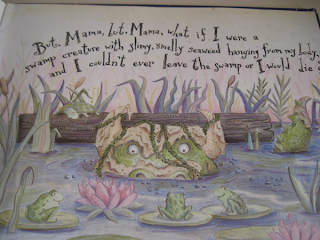 But, Mama, but Mama, what if I were a
swamp creature with slimy, smelly seaweed hanging from my body,
and I couldn't ever leave the swamp or I would die